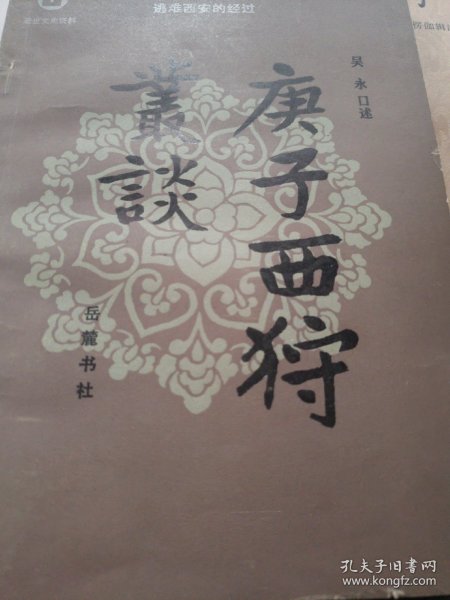 逃难西安的经过
吴永口述
庚子西狩
叢談
岳麓书社
孔夫子旧书网
www.kongfz.com